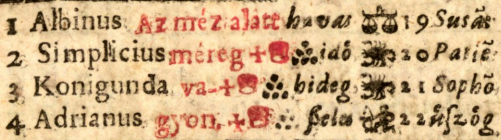 1 Albinus Az méz alatt havas 19 Susāṡ
2 Simplicius méreg + idő 20 Patiē
3 Konigunda va- + hideg 21 Sophō
4 Adrianus gyon. + ſzeles 22 üſzög